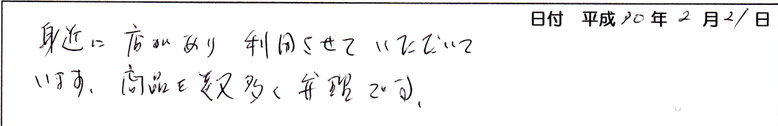 日付 平成30年2月21日
身近に店があり利用させていただいて
います。商品も数多く弁理です。